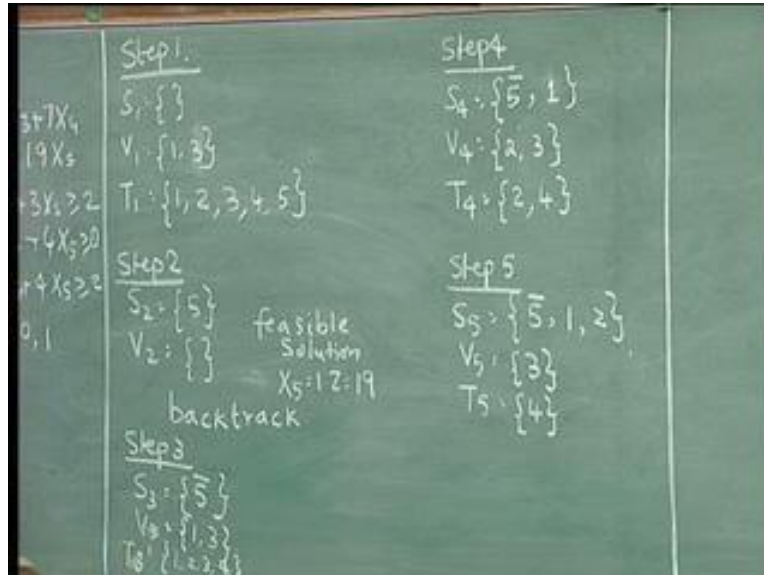 3+7X4
19X5
+3X5≥2
-+4X5≥0
+4X5≥2
0,1
Step1.
S1={}
V1={1,3}
T1={1,2,3,4,5}
Step2
S2={5}
V2={}
feasible
Solution
X5=1 Z=19
backtrack
Step3
S3={5̅}
V3={1,3}
T3={1,2,3,4}
Step4
S4={5̅,1}
V4={2,3}
T4={2,4}
Step5
S5={5̅,1,2}
V5={3}
T5={4}